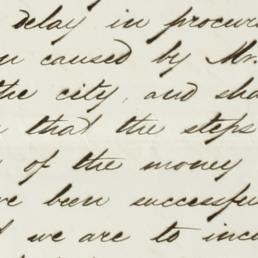 delay in procur
n caused by Mr.
the city, and sha
that the steps
of the money
ve been successfu
we are to inc